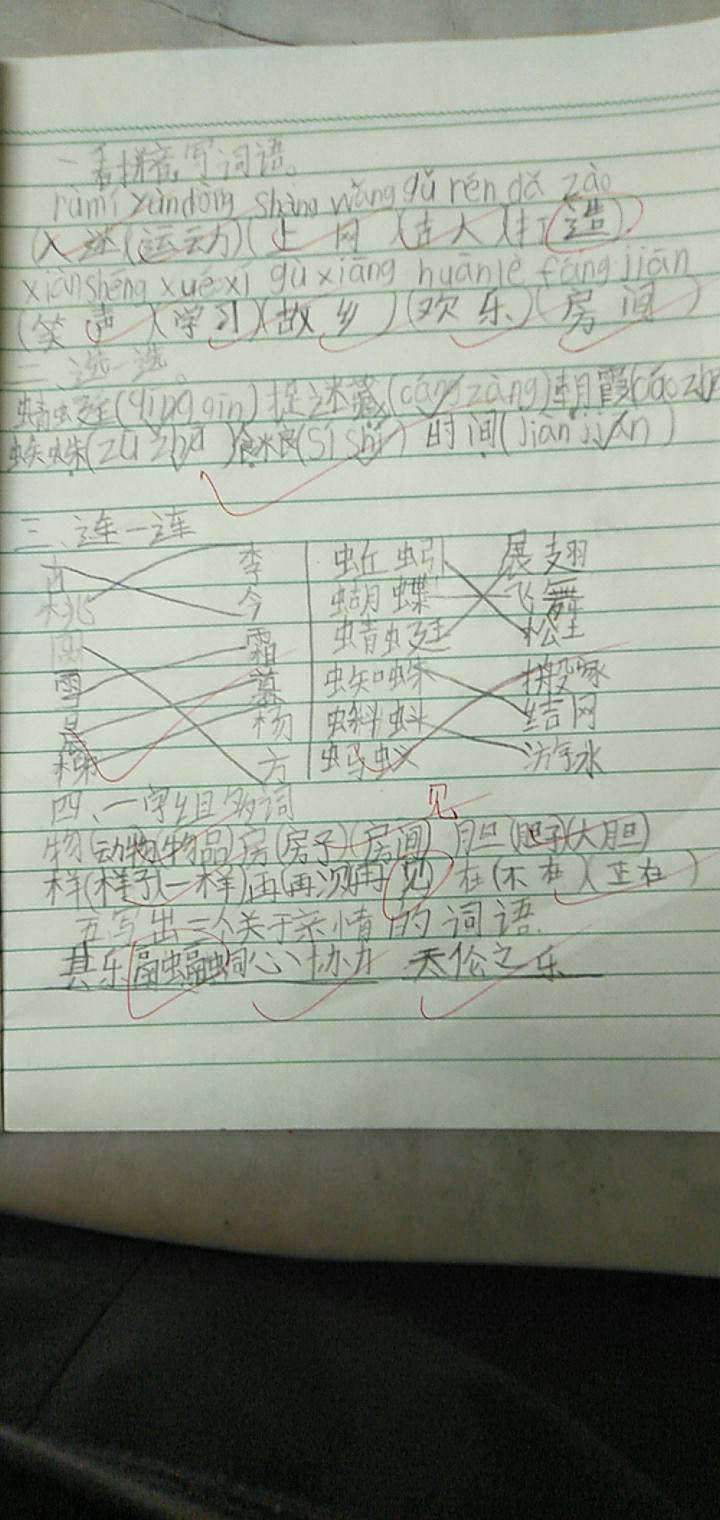 一看拼音,写词语。
rùmí yùndòng shàng wǎng gǔ rén dǎ zào
(入迷)(运动)(上网)(古人)(打造)
xiàoshēng xuéxí gùxiāng huānlè fángjiān
(笑声)(学习)(故乡)(欢乐)(房间)
二、选一选。
蜻蜓(qīng qīn)捉迷藏(cáng zàng)朝霞
蜘蛛(zū zhū)食粮(sí shí)时间(jiān jiàn)
三、连一连
李 蚯蚓 展翅
桃 今 蝴蝶 飞舞
霜 蜻蜓 松土
雪 暮 蜘蛛 搬家
杨 蝌蚪 结网
方 蚂蚁 游水
四、一字组多词
见
物(动物)(物品)房(房子)(房间)胆(胆子)(大胆)
样(样子)(一样)再(再次)(再见)在(不在)(正在)
五写出三个关于亲情的词语.
其乐融融 同心协力 天伦之乐